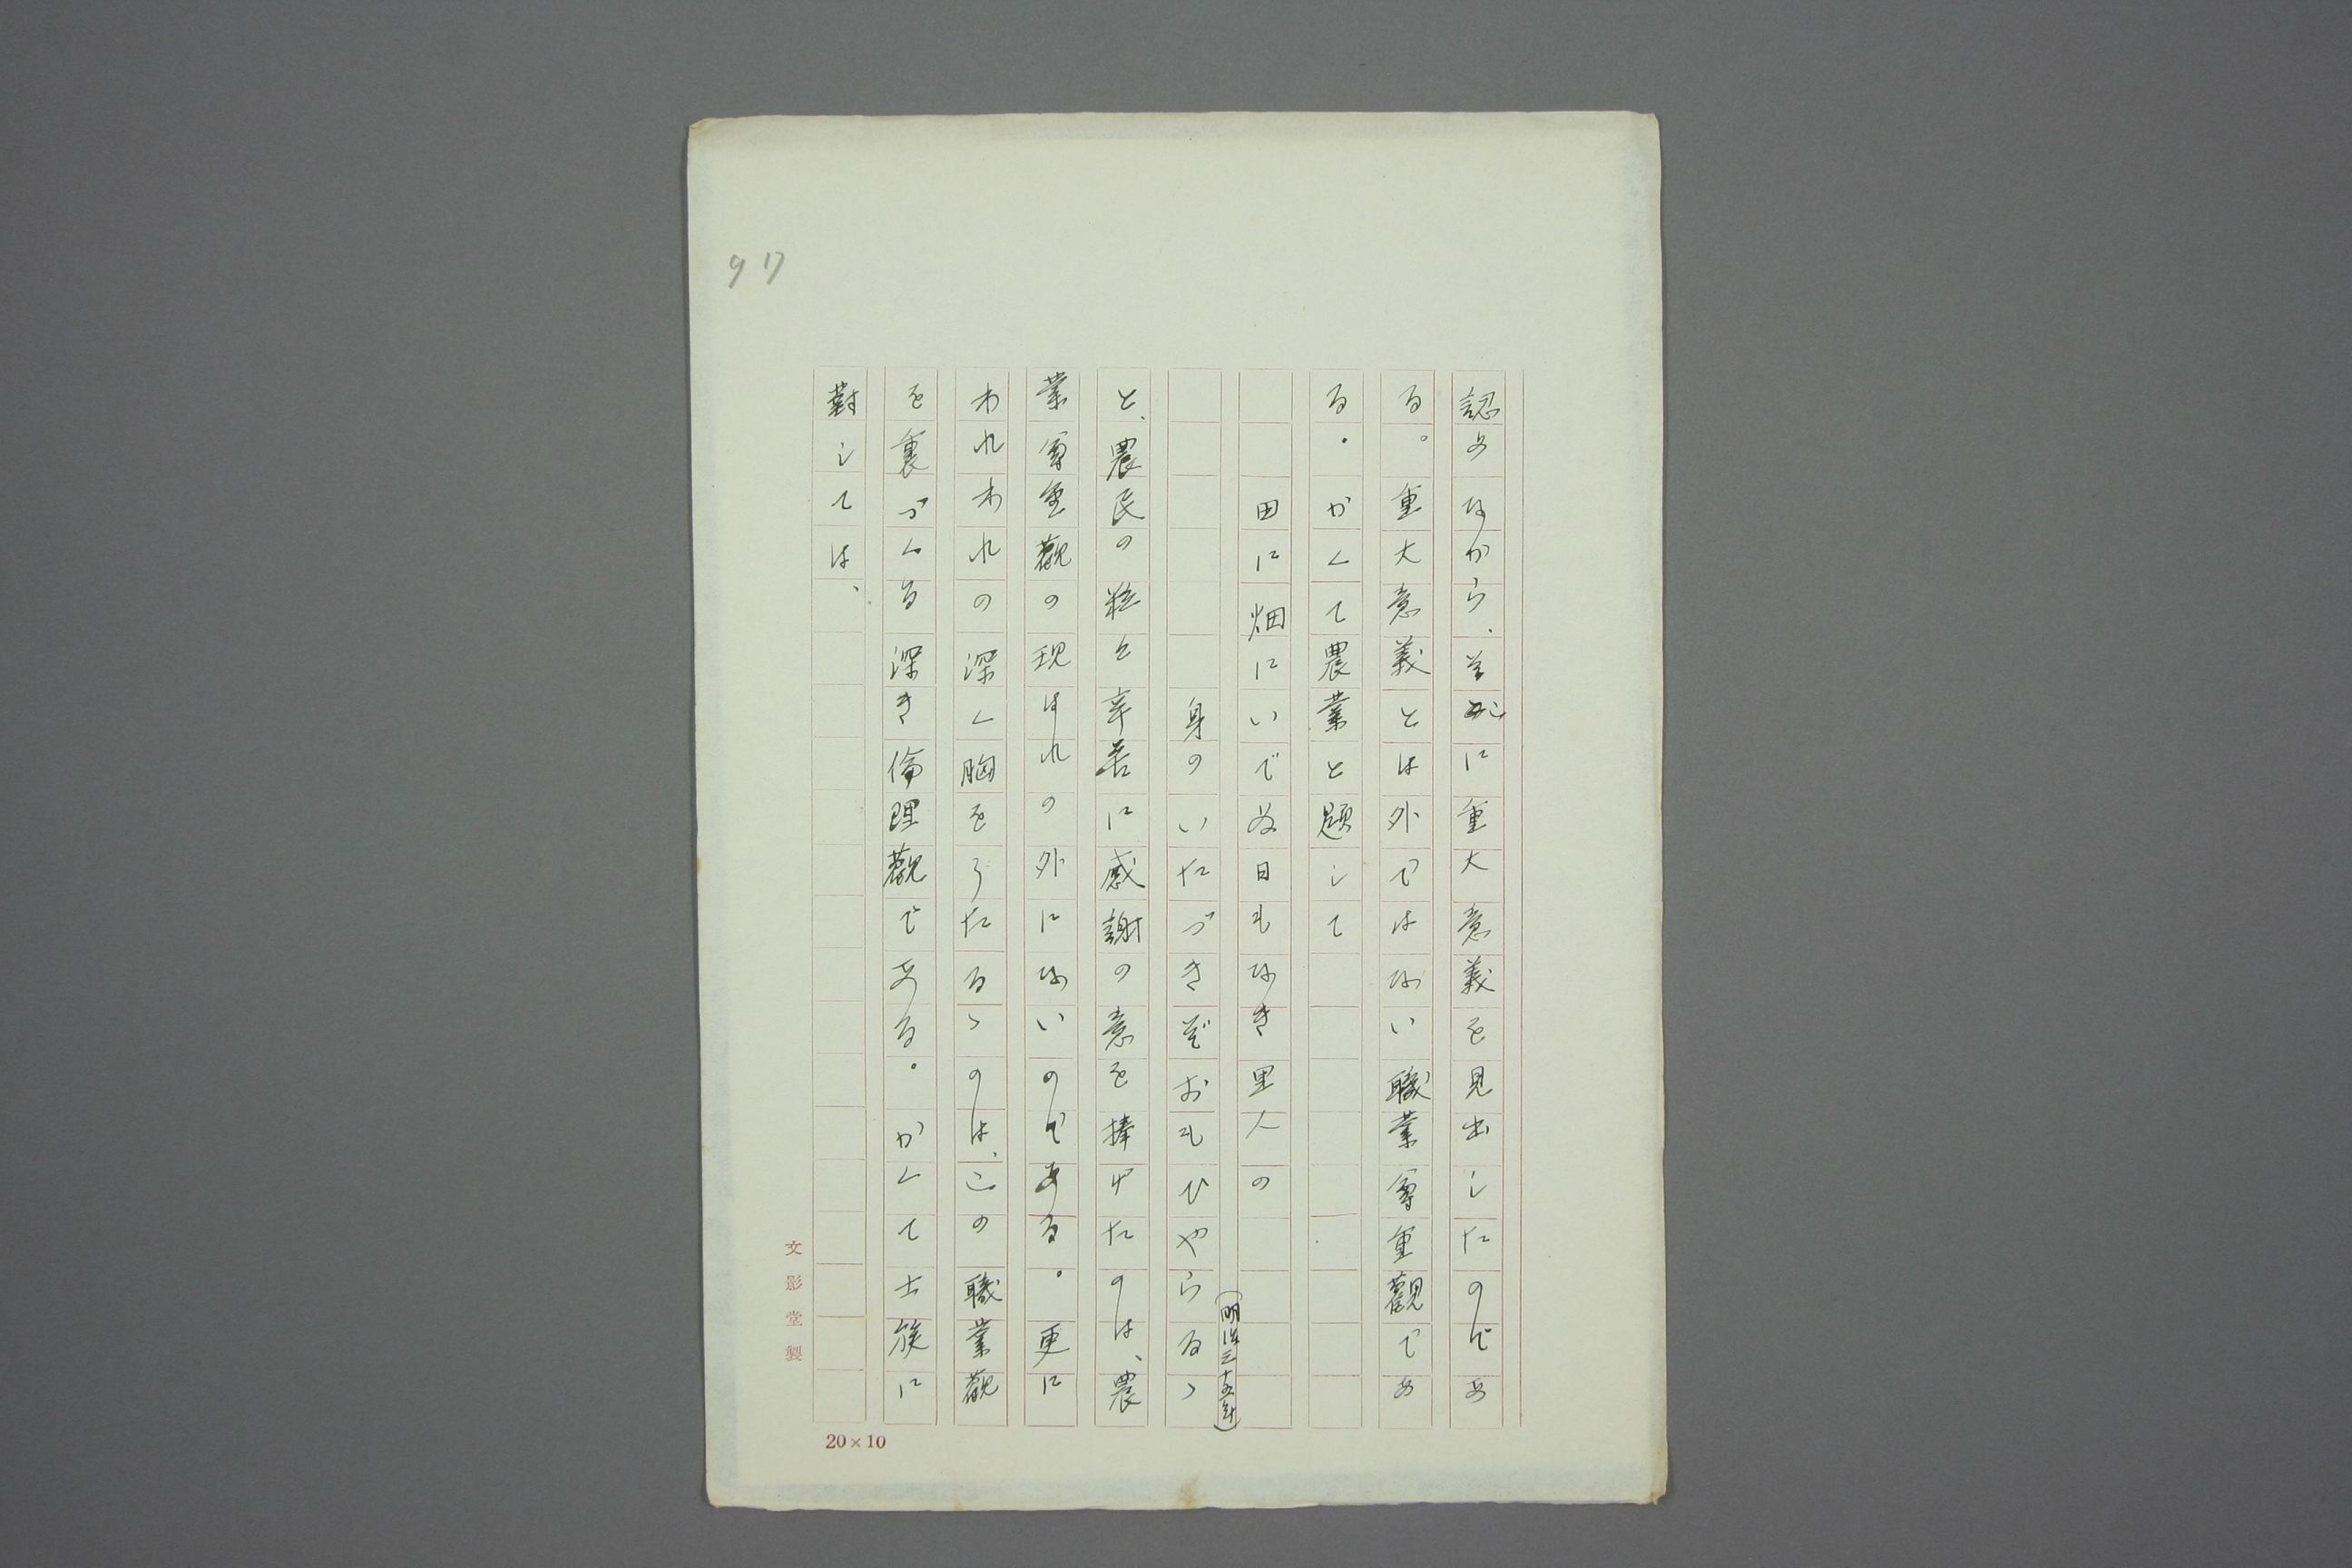 97
認めながら、玆に重大意義を見出したのであ
る。重大意義とは外ではない職業尊重觀であ
る。かくて農業と題して
田に畑にいでぬ日もなき里人の
身のいたづきぞおもひやらるゝ
(明治三十五年)
と、農民の粒々辛苦に感謝の意を捧げたのは、農
業尊重觀の現はれの外にないのである。更に
われわれの深く胸をうたるゝのは、この職業觀
を裏づくる深き倫理觀である。かくて士族に
對しては、
文影堂製
20×10